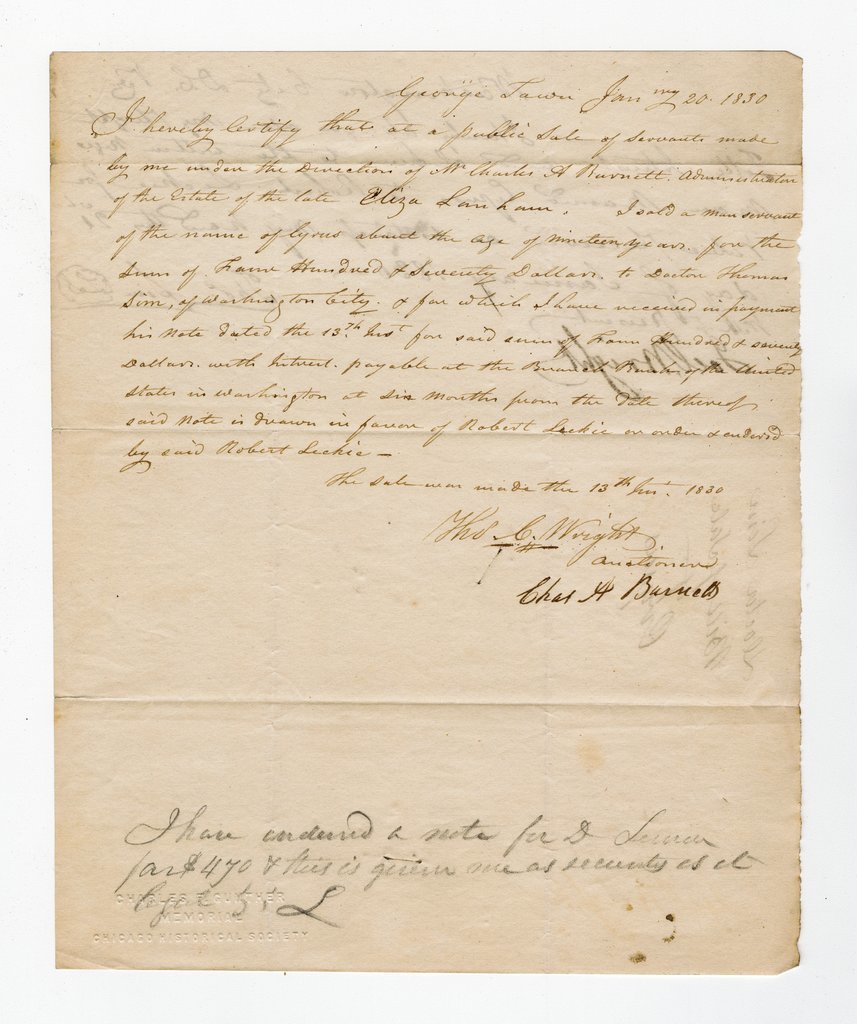 George Town Jan'ry 20. 1830
I hereby Certify that at a public Sale of servants made
by me under the Direction of Mr Charles A Barnett. Administrator
of the Estate of the late Eliza Lanham. I sold a man servant
of the name of Cyrus about the age of nineteen years. for the
sum of Four Hundred & Seventy Dollars. to Doctor Thomas
Sim, of Washington City. & for which I have received in payment
his Note dated the 13th Inst for said sum of Four Hundred & seventy
Dollars. with Interest. payable at the Branch Bank of the United
States in Washington at six months from the date thereof
said Note is drawn in favor of Robert Leckie or order & endorsed
by said Robert Leckie —
The sale was made the 13th Inst. 1830
Thos C. Wright
Auctioneer
Chas A Barnett
I have endorsed a note for D
for $470 & this is given me as security as it
L
CHARLES F. GUNTHER
MEMORIAL
CHICAGO HISTORICAL SOCIETY